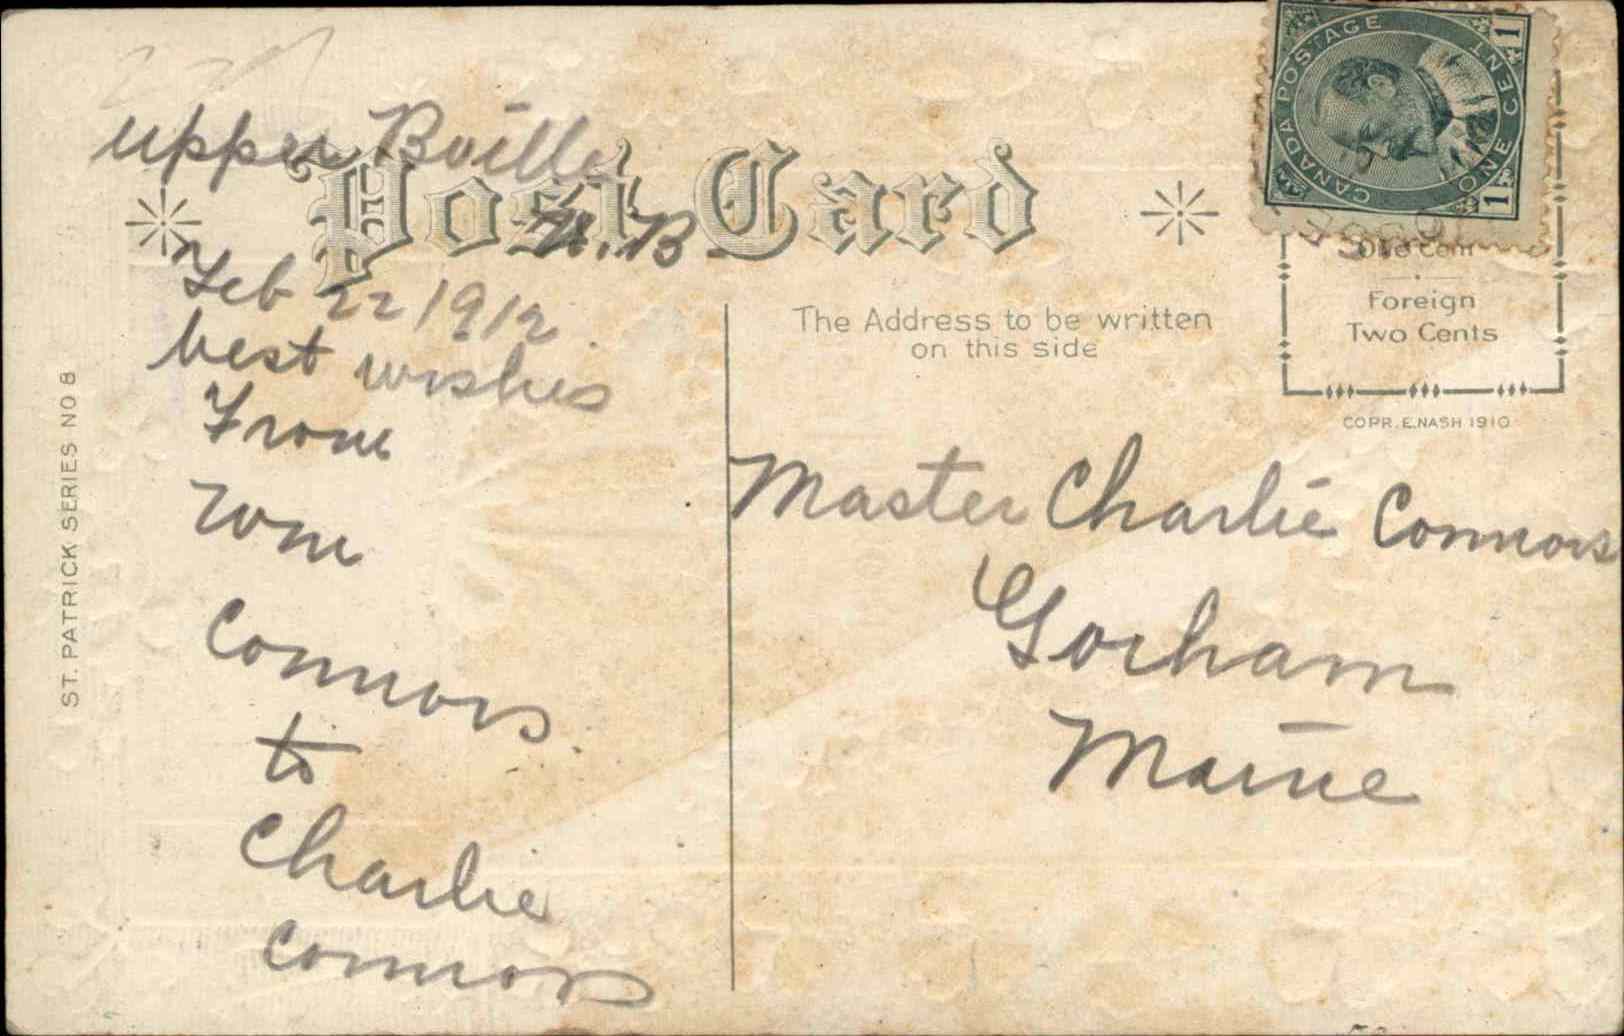 upper Bville
N.B
Feb 22 1912
best wishes
From
Tom
Connors
to
Charlie
Connors
ST. PATRICK SERIES NO 8
Post Card
The Address to be written
on this side
CANADA POSTAGE
ONE CENT
1 1
One Cent
Foreign
Two Cents
COPR. E. NASH 1910
Master Charlie Connors
Gorham
Maine